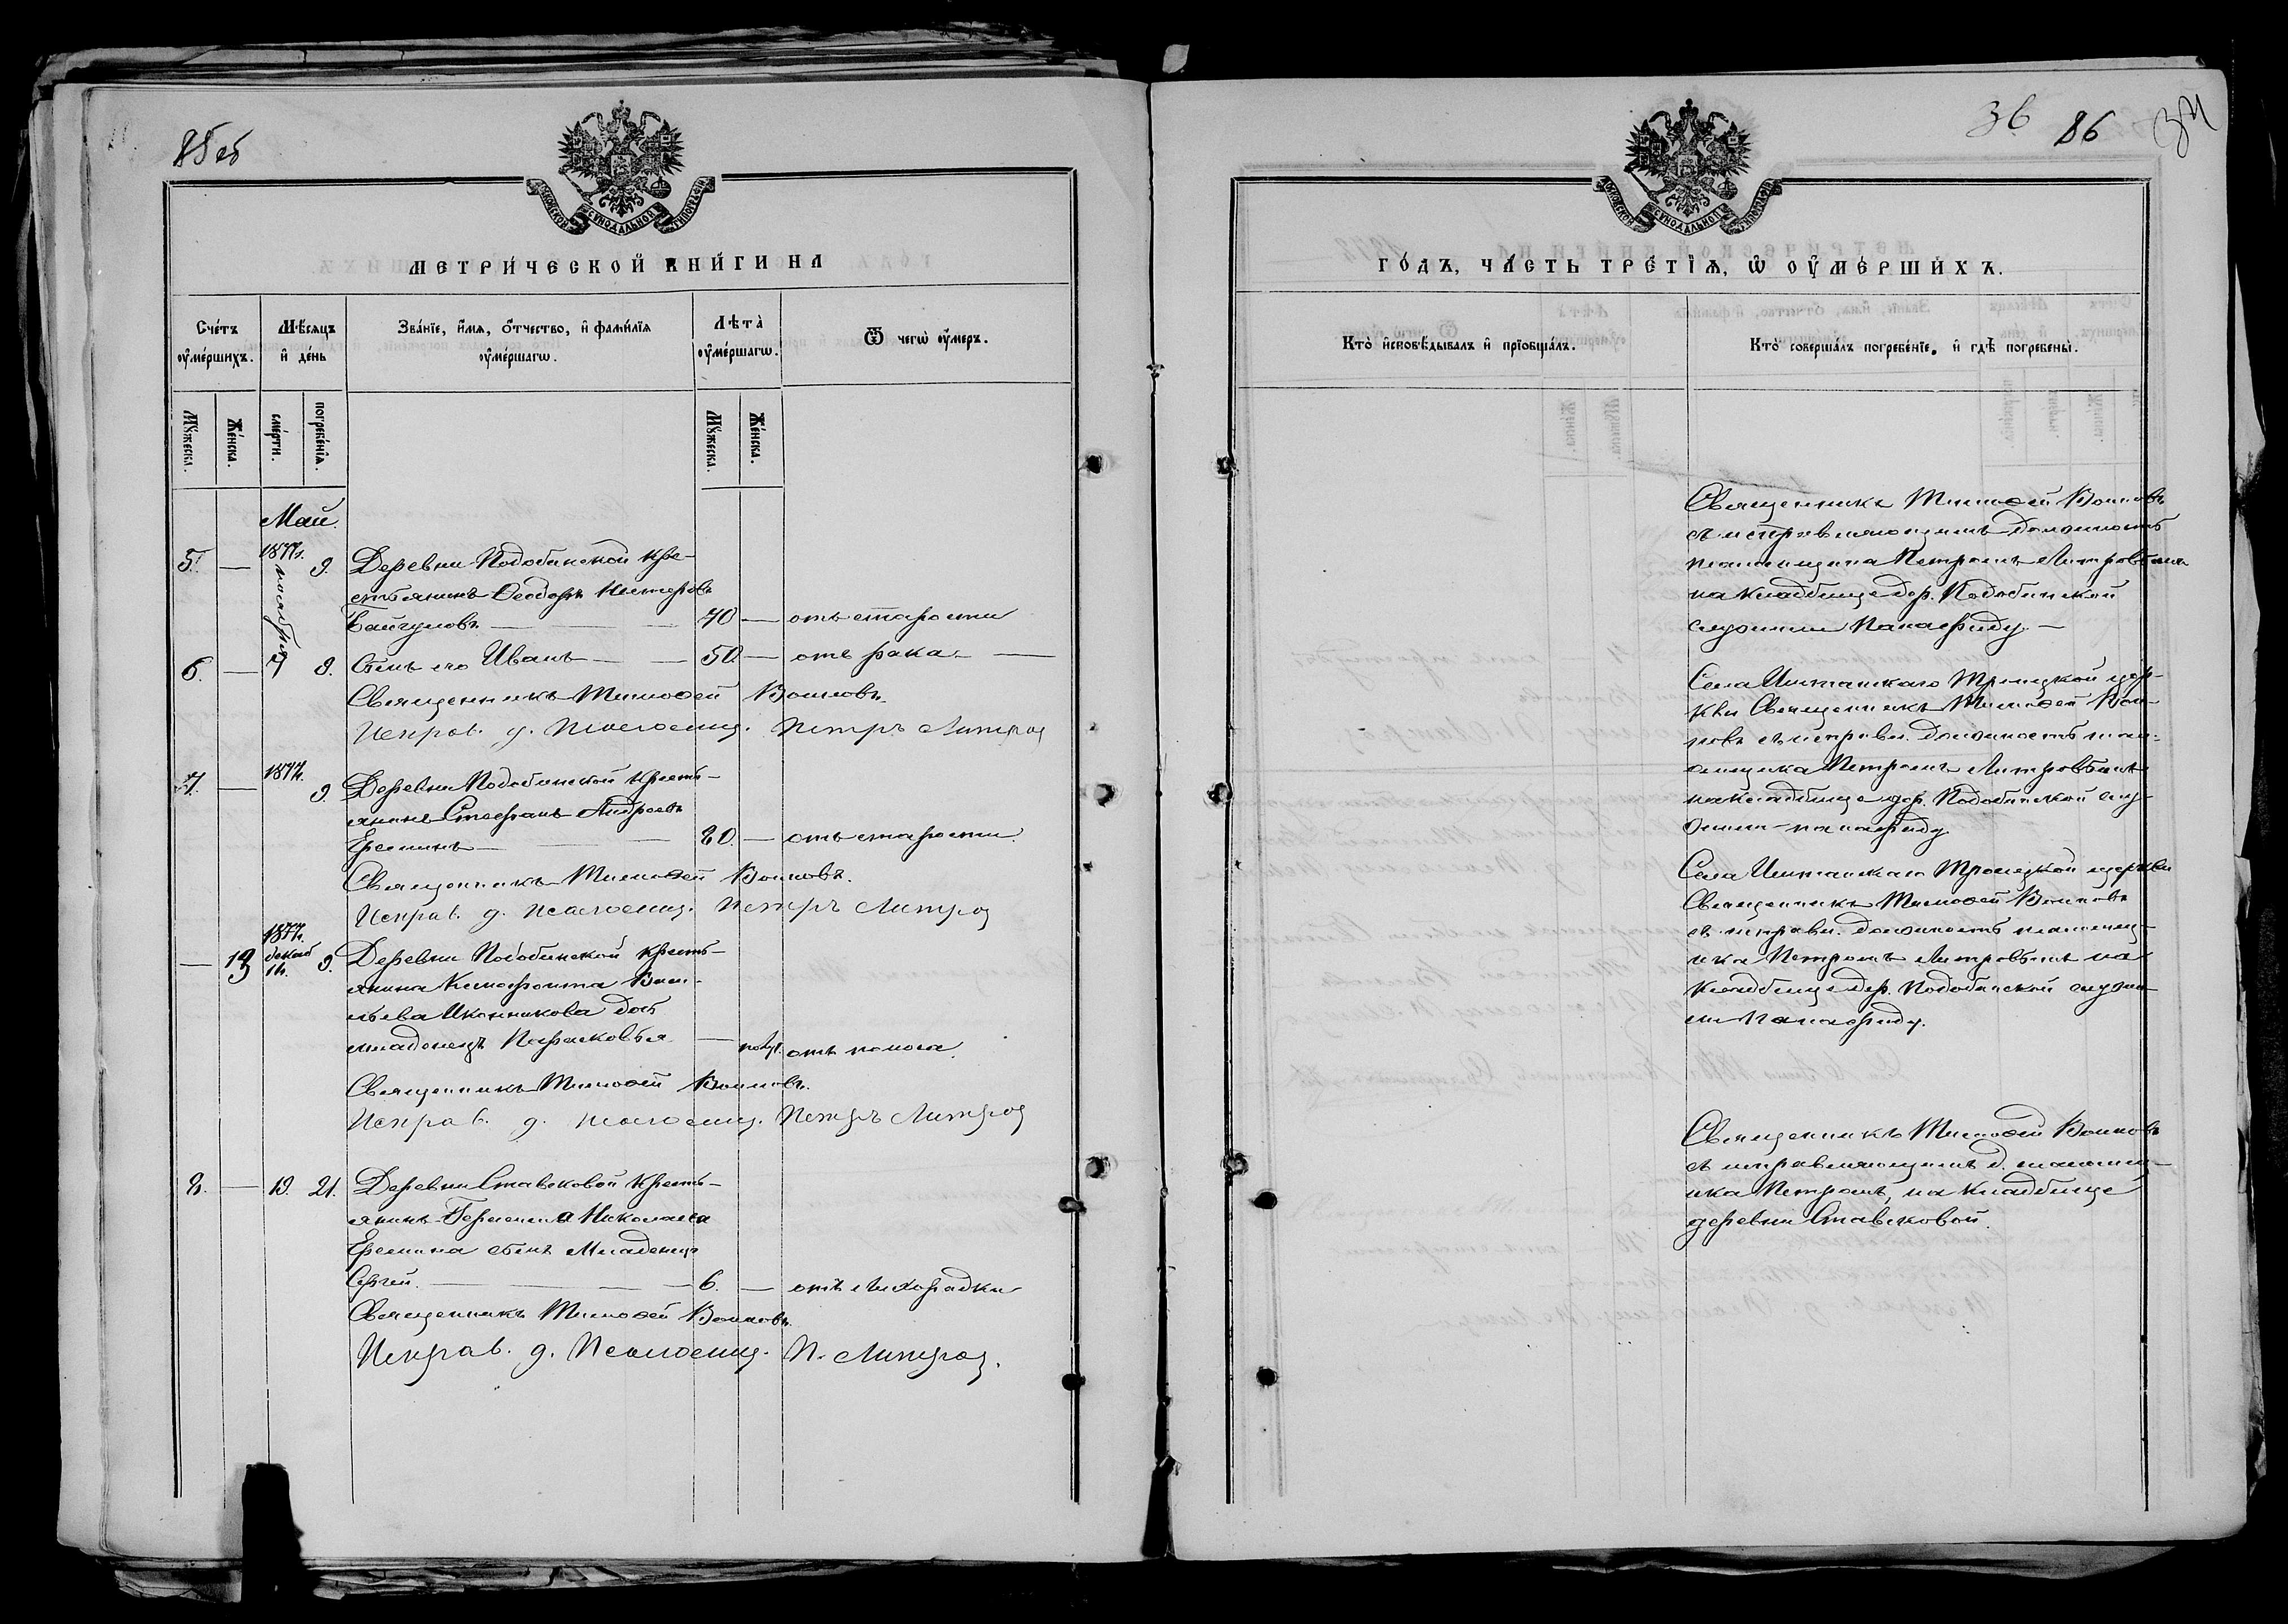 85 об
МЕТРИЧЕСКОЙ КНИГИ НА
Счетъ оумершихъ.
Мѣсяцъ и день
Званіе, имя, отчество, и фамилія оумершагѡ.
Лѣта оумершагѡ.
Ѿ чегѡ оумеръ.
Мужеска.
Женска.
смерти.
погребенія.
Мужеска.
Женска.
Май.
5. — 1877г. ноября 9. Деревни Подобинской кре-
стьянинъ Ѳеодоръ Нестеровъ
Байгуловъ — 70 — отъ старости
6. — 7 9. Сынъ его Иванъ — 50 — отъ рака —
Священникъ Тимоѳей Воиновъ.
Исправ. д. Псаломщ. Петръ
7. — 1877г. 9. Деревни Подобинской кресть-
янинъ Стефанъ Андреевъ
Ереминъ — 80 — отъ старости.
Священникъ Тимоѳей Воиновъ.
Исправ. д. Псаломщ. Петръ
— 13 1877г. декаб 16. 9. Деревни Подобинской кресть-
янина Ксенофонта Васи-
льева Иконникова дочь
младенецъ Парасковья — отъ поноса.
Священникъ Тимоѳей Воиновъ.
Исправ. д. псаломщ. Петръ
8. — 19. 21. Деревни Ставсковой кресть-
янина Николаева
Еремина сынъ Младенецъ
Сергей. — 6. — отъ лихорадки
Священникъ Тимоѳей Воиновъ.
Исправ. д. Псаломщ. П.
36 86 34
ГОДЪ, ЧАСТЬ ТРЕТІЯ, Ѡ ОУМЕРШИХЪ.
Кто исповѣдывалъ и пріобщалъ.
Кто совершалъ погребеніе, и гдѣ погребены.
Священникъ Тимоѳей Воиновъ
съ исправляющимъ должность
псаломщика Петромъ
на кладбище дер. Подобинской
служили Панафиду —
Села Троицкой цер-
кви Священникъ Тимоѳей Вои-
новъ съ исправл. должность псал-
омщика Петромъ
на кладбище дер. Подобинской слу-
жили панафиду
Села Троицкой церкви
Священникъ Тимоѳей Воиновъ
съ исправл. должность псаломщ-
ика Петромъ на
кладбище дер. Подобинской служи-
ли Панафиду.
Священникъ Тимоѳей Воиновъ
съ исправляющимъ д. псаломщ-
ика Петромъ, на кладбище
деревни Ставсковой.